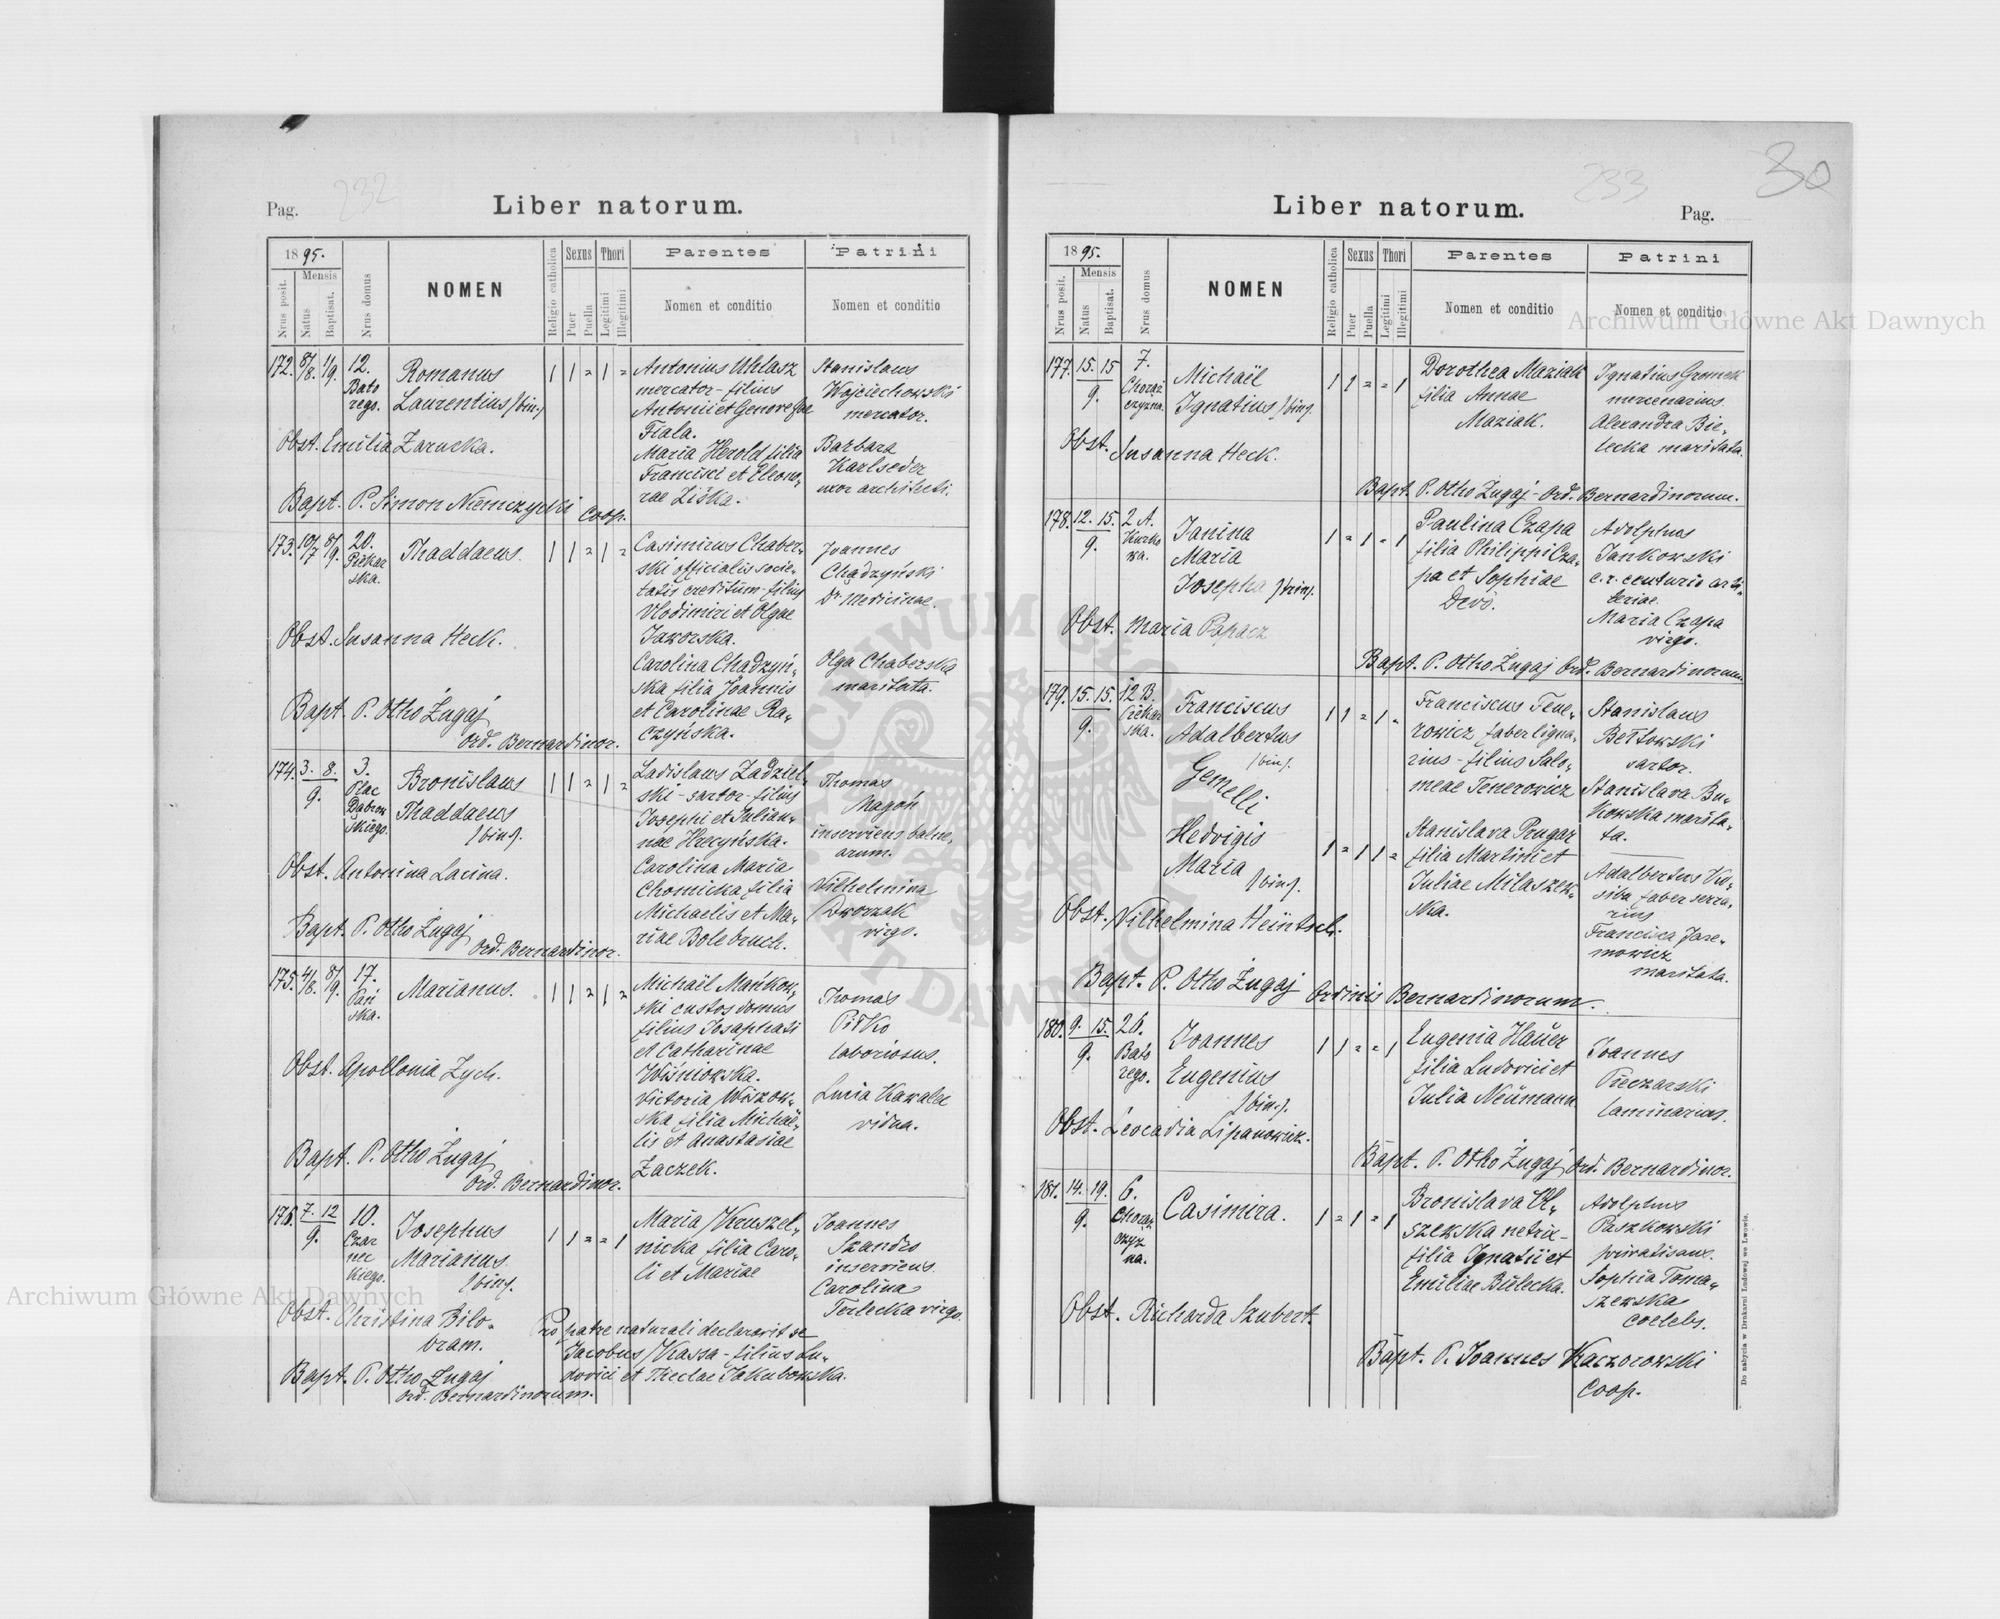 232
Pag.
Liber natorum.
1895.
Nrus posit.
Mensis
Natus
Baptisat.
Nrus domus
NOMEN
Religio catholica
Sexus
Puer
Puella
Thori
Legitimi
Illegitimi
Parentes
Nomen et conditio
Patrini
Nomen et conditio
172. 8/8. 1/9. 12.
Bato
rego.
Romanus
Laurentius /bin./
1 1 = 1 =
Antonius Uhlasz
mercator - filius
Antonii et Genovefae
Fiala.
Maria Herold filia
Francisci et Eleono-
rae Ziska.
Stanislaus
Wojciechowski
mercator.
Barbara
Karlseder
uxor architecti.
Obst. Emilia Zarucka.
Bapt. P. Simon Niemczycki Coop.
173. 10/7 8/9. 20.
Piekar
ska.
Thaddaeus.
1 1 = 1 =
Casimirus Chaber-
ski officialis socie-
tatis creditum - filius
Vlodimiri et Olgae
Jaworska.
Carolina Chądzyń-
ska filia Joannis
et Carolinae Ra-
czyńska.
Joannes
Chądzyński
Dr. Medicinae.
Olga Chaberska
maritata.
Obst. Susanna Heck.
Bapt. P. Otho Żugaj
Ord. Bernardinor.
174. 3. 8.
9.
3.
Plac
Dąbrow
skiego.
Bronislaus
Thaddaeus
/bin/.
1 1 = 1 =
Ladislaus Zadziel-
ski - sartor - filius
Josephi et Julian-
nae Hreczyńska.
Carolina Maria
Chomicka filia
Michaelis et Ma-
riae Bolebruch.
Thomas
Magoń
inserviens balne-
arum.
Wilhelmina
Dworzak
virgo.
Obst. Antonina Lacina.
Bapt. P. Otho Żugaj
Ord. Bernardinor.
175. 4/8. 8/9. 17.
Pań
ska.
Marianus.
1 1 = 1 =
Michaël Mańkow-
ski custos domus
filius Josaphati
et Catharinae
Wiśniowska.
Victoria Wiszow-
ska filia Michaë-
lis et Anastasiae
Zaczek.
Thomas
Piłko
laboriosus.
Lucia Kawalec
vidua.
Obst. Apollonia Zych.
Bapt. P. Otho Żugaj
Ord. Bernardinor.
176. 7. 12
9.
10.
Czar
nec
kiego.
Josephus
Marianus
/bin/.
1 1 = = 1
Maria Kruszel-
nicka filia Caro-
li et Mariae
Joannes
Szandro
inserviens.
Carolina
Terlecka virgo.
Obst. Christina Bilo-
bram.
Pro patre naturali declaravit se
Jacobus Kassa - filius Lu-
dovici et Theclae Jakubowska.
Bapt. P. Otho Żugaj
Ord. Bernardinorum.
233
30
Liber natorum.
Pag.
1895.
Nrus posit.
Mensis
Natus
Baptisat.
Nrus domus
NOMEN
Religio catholica
Sexus
Puer
Puella
Thori
Legitimi
Illegitimi
Parentes
Nomen et conditio
Patrini
Nomen et conditio
177. 15. 15
9.
7.
Chorąż
czyzna.
Michaël
Ignatius /bin/.
1 1 = = 1
Dorothea Maziak
filia Annae
Maziak.
Ignatius Gromek
mercenarius.
Alexandra Bie-
lecka maritata.
Obst. Susanna Heck.
Bapt. P. Otho Żugaj - Ord. Bernardinorum.
178. 12. 15.
9.
2 A.
Kurko
wa.
Janina
Maria
Josepha /trin/.
1 = 1 = 1
Paulina Czapa
filia Philippi Cza-
pa et Sophiae
Adolphus
Jankowski
c. r. centurio artil-
leriae.
Maria Czapa
virgo.
Obst. Maria Papacz
Bapt. P. Otho Żugaj Ord. Bernardinorum.
179. 15. 15.
9.
12 B.
Piekar
ska.
Franciscus
Adalbertus
/bin/.
Gemelli
Hedvigis
Maria
/bin/.
1 1 = 1 =
1 = 1 1 =
Franciscus Tene-
rowicz faber ligna-
rius - filius Salo-
meae Tenerowicz
Stanislava Prugar
filia Martini et
Juliae Milaszew-
ska.
Stanislaus
Bełtowski
sartor.
Stanislava Bu-
kowska marita-
ta.
Adalbertus Ku-
siba faber serra-
rius
Francisca Jare-
mowicz
maritata.
Obst. Wilhelmina Heintsch.
Bapt. P. Otho Żugaj Ordinis Bernardinorum.
180. 9. 15.
9.
26.
Bato
rego.
Joannes
Eugenius
/bin/.
1 1 = = 1
Eugenia Haüer
filia Ludovici et
Julia Neümann
Joannes
Pieczarski
laminarius.
Obst. Leocadia Lipanowicz.
Bapt. P. Otho Żugaj Ord. Bernardinor.
181. 14. 19.
9.
6.
Chorąż
czyz
na.
Casimira.
1 = 1 = 1
Bronislava Ol-
szewska netrix-
filia Ignatii et
Emiliae Bielecka.
Adolphus
Paszkowski
privatisans.
Sophia Toma-
szewska
coelebs.
Obst. Richarda Szubert.
Bapt. P. Joannes Kaczorowski
Coop.
Do nabycia w Drukarni Ludowej we Lwowie.
Archiwum Główne Akt Dawnych
Archiwum Główne Akt Dawnych
ARCHIWUM GŁÓWNE AKT DAWNYCH